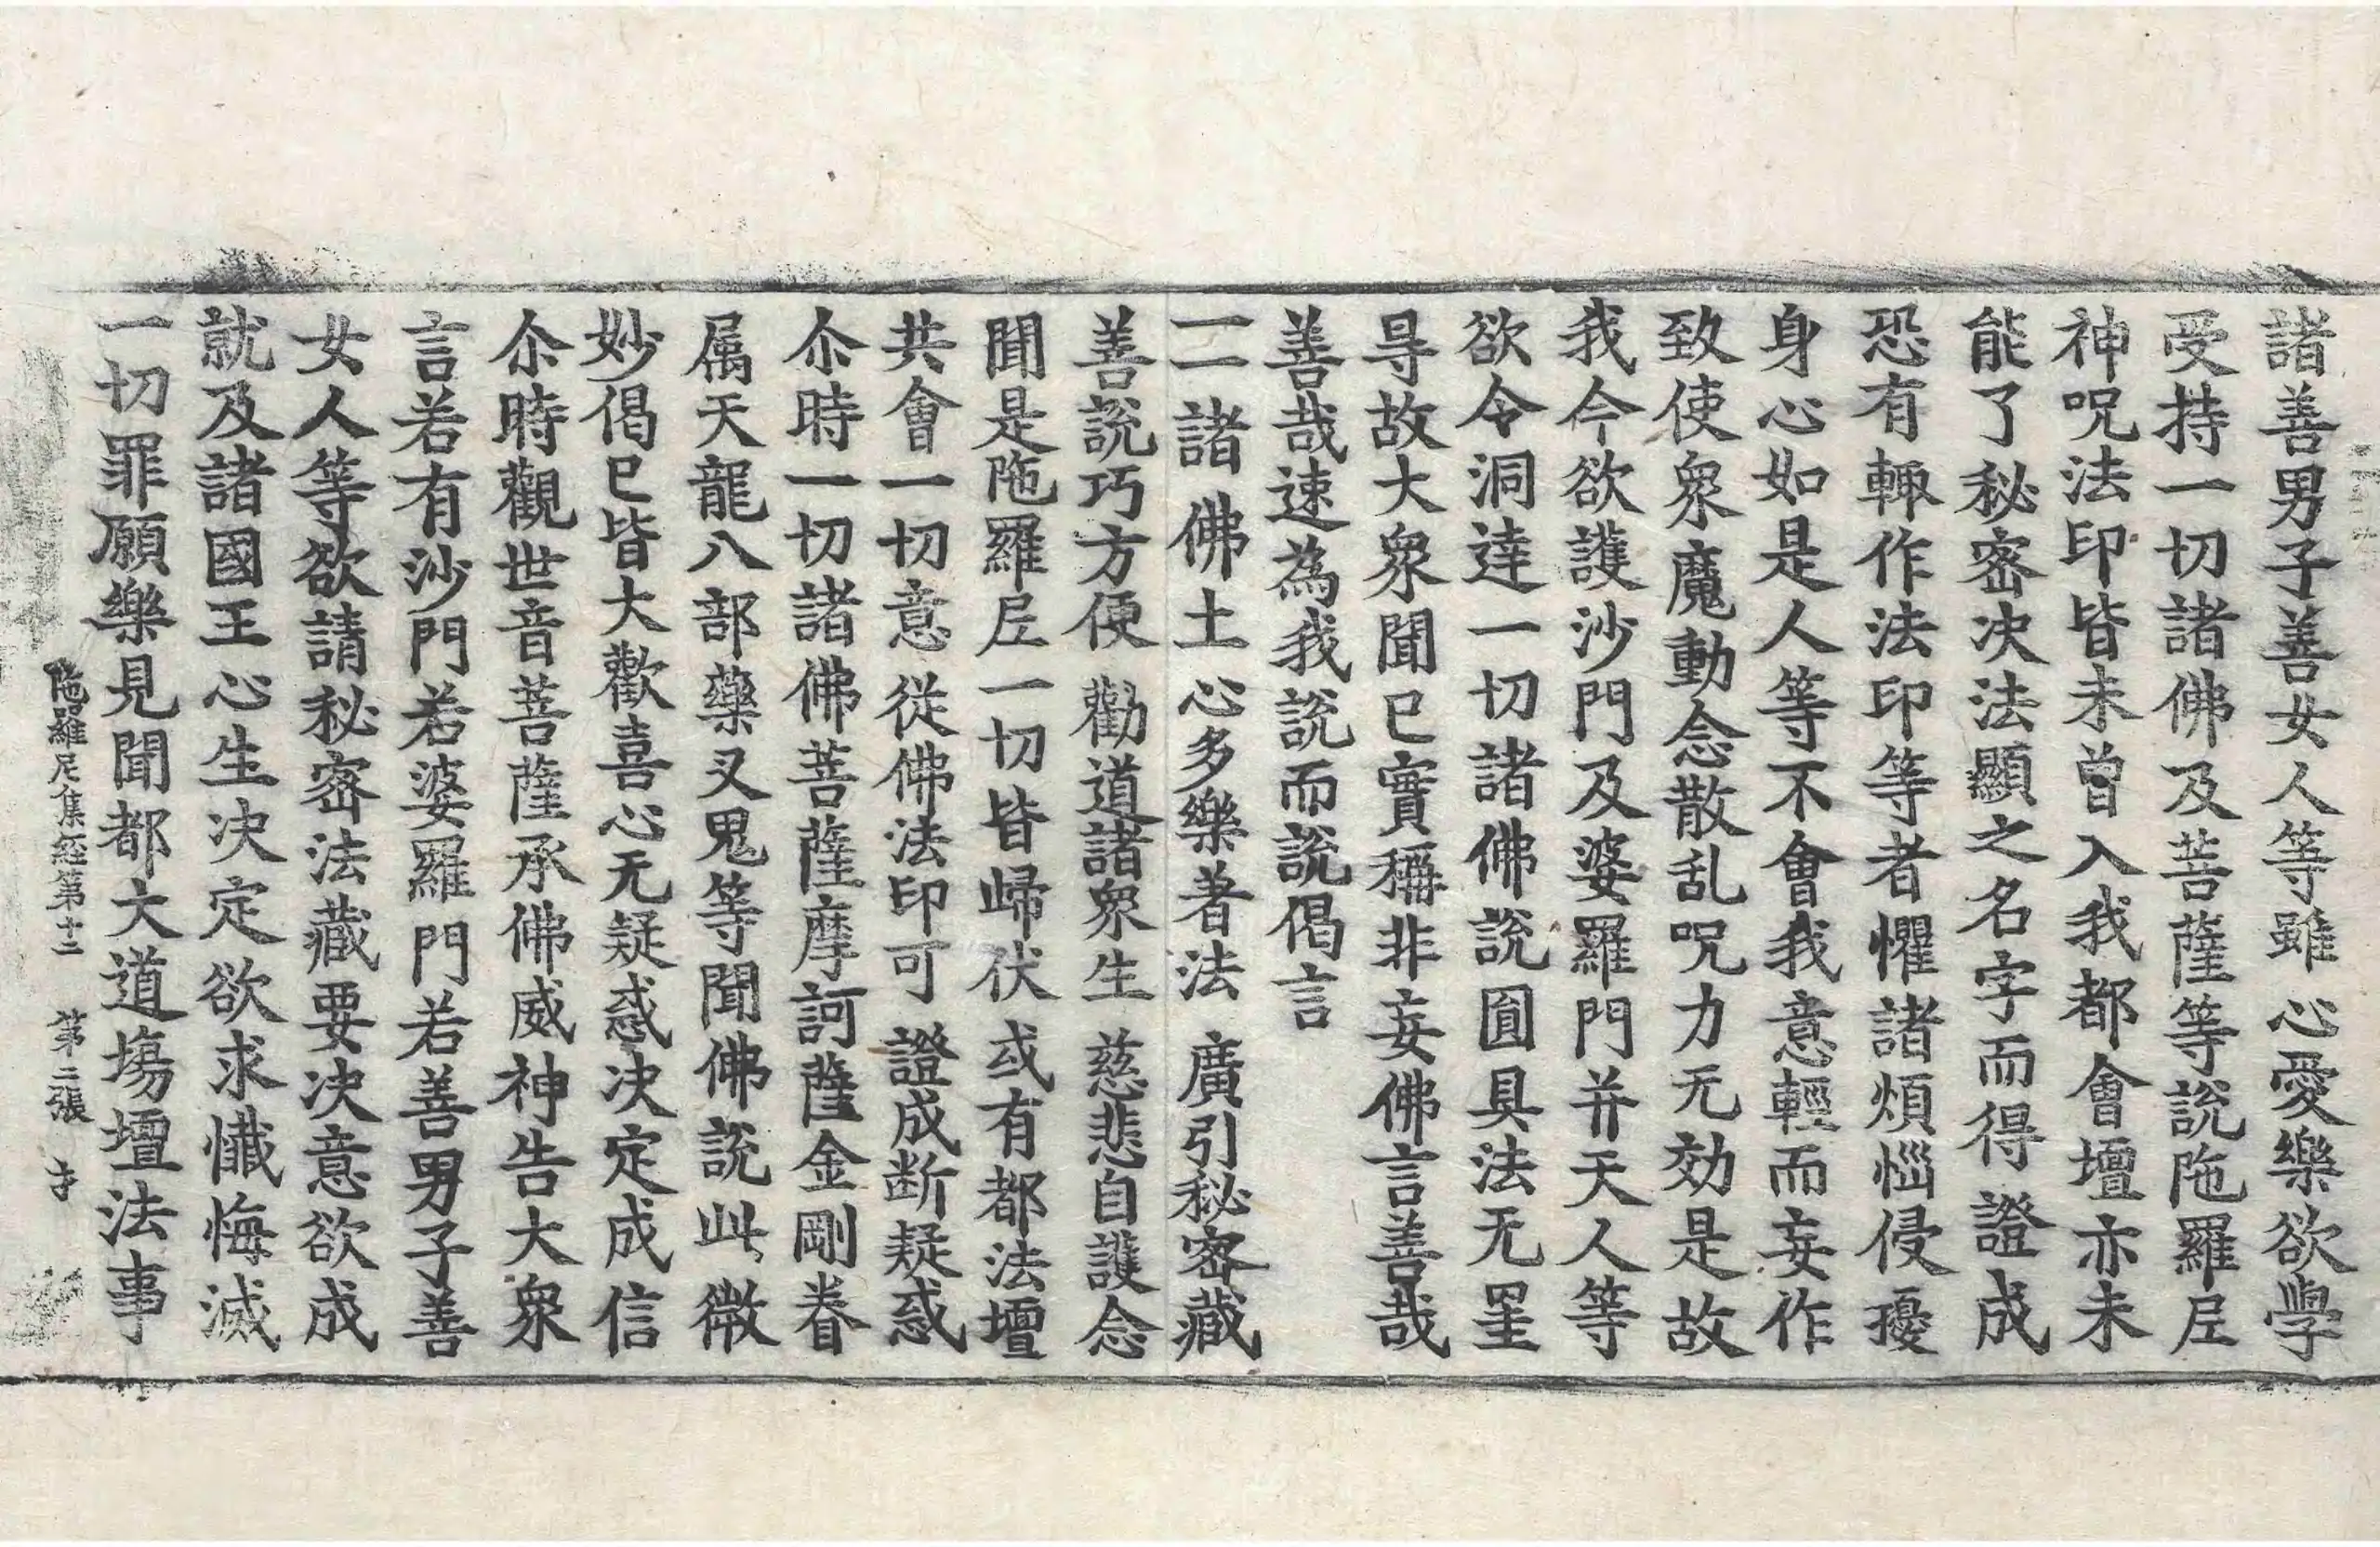 諸善男子善女人等雖心愛樂欲學
受持一切諸佛及菩薩等說陁羅𡰱
神呪法印皆未曾入我都會壇亦未
能了秘密决法顯之名字而得證成
恐有輙作法印等者懼諸煩惱侵擾
身心如是人等不會我意輕而妄作
致使衆魔動念散乱呪力无効是故
我今欲護沙門及婆羅門并天人等
欲令洞達一切諸佛說圎具法无罣
㝵故大衆聞已實稱非妄佛言善哉
善哉速為我說而說偈言
一一諸佛土 心多樂著法 廣引秘密藏
善說巧方便 勸道諸衆生 慈悲自護念
聞是陁羅𡰱 一切皆歸伏 或有都法壇
共會一切意 從佛法印可 證成断疑惑
尒時一切諸佛菩薩摩訶薩金剛眷
属天龍八部藥叉鬼等聞佛說此微
妙偈已皆大歡喜心无疑惑决定成信
尒時觀世音菩薩承佛威神告大衆
言若有沙門若婆羅門若善男子善
女人等欲請秘密法藏要决意欲成
就及諸國王心生决定欲求懺悔滅
一切罪願樂見聞都大道塲壇法事
陁羅尼集經第十二 第二張 才